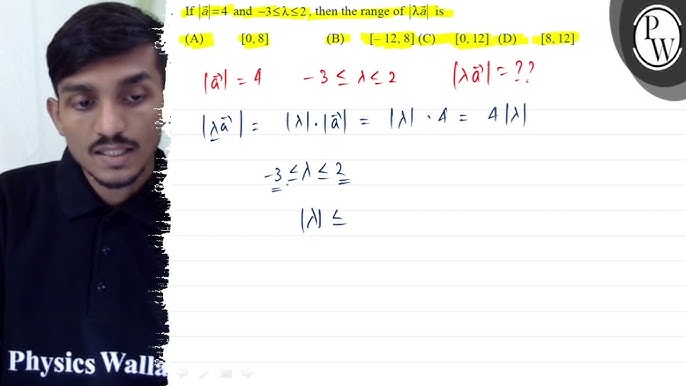 If |a⃗|=4 and −3≤λ≤2, then the range of |λa⃗| is
(A) [0, 8] (B) [− 12, 8] (C) [0, 12] (D) [8, 12]
|a⃗| = 4 −3 ≤ λ ≤ 2 |λa⃗| = ??
|λa⃗| = |λ|·|a⃗| = |λ|·4 = 4|λ|
−3 ≤ λ ≤ 2
|λ| ≤
P
W
Physics Walla